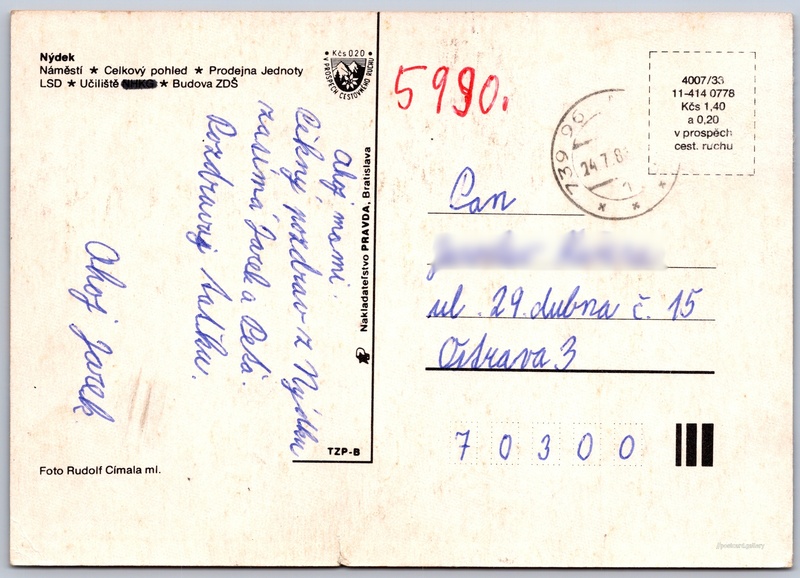 Nýdek
Náměstí ★ Celkový pohled ★ Prodejna Jednoty
LSD ★ Učiliště ★ Budova ZDŠ
Kčs 0.20
V PROSPĚCH CESTOVNÍHO RUCHU
Ahoj mami.
Pěkný pozdrav z Nýdku
zasílá Jarek a Peťa.
Pozdravuj taťku.
Ahoj Jarek
Nakladatelství PRAVDA, Bratislava
TZP-B
Foto Rudolf Címala ml.
5990.
739 96
24.7.8
1
4007/33
11-414 0778
Kčs 1,40
a 0,20
v prospěch
cest. ruchu
Pan
ul. 29. dubna č. 15
Ostrava 3
70300
//postcard.gallery